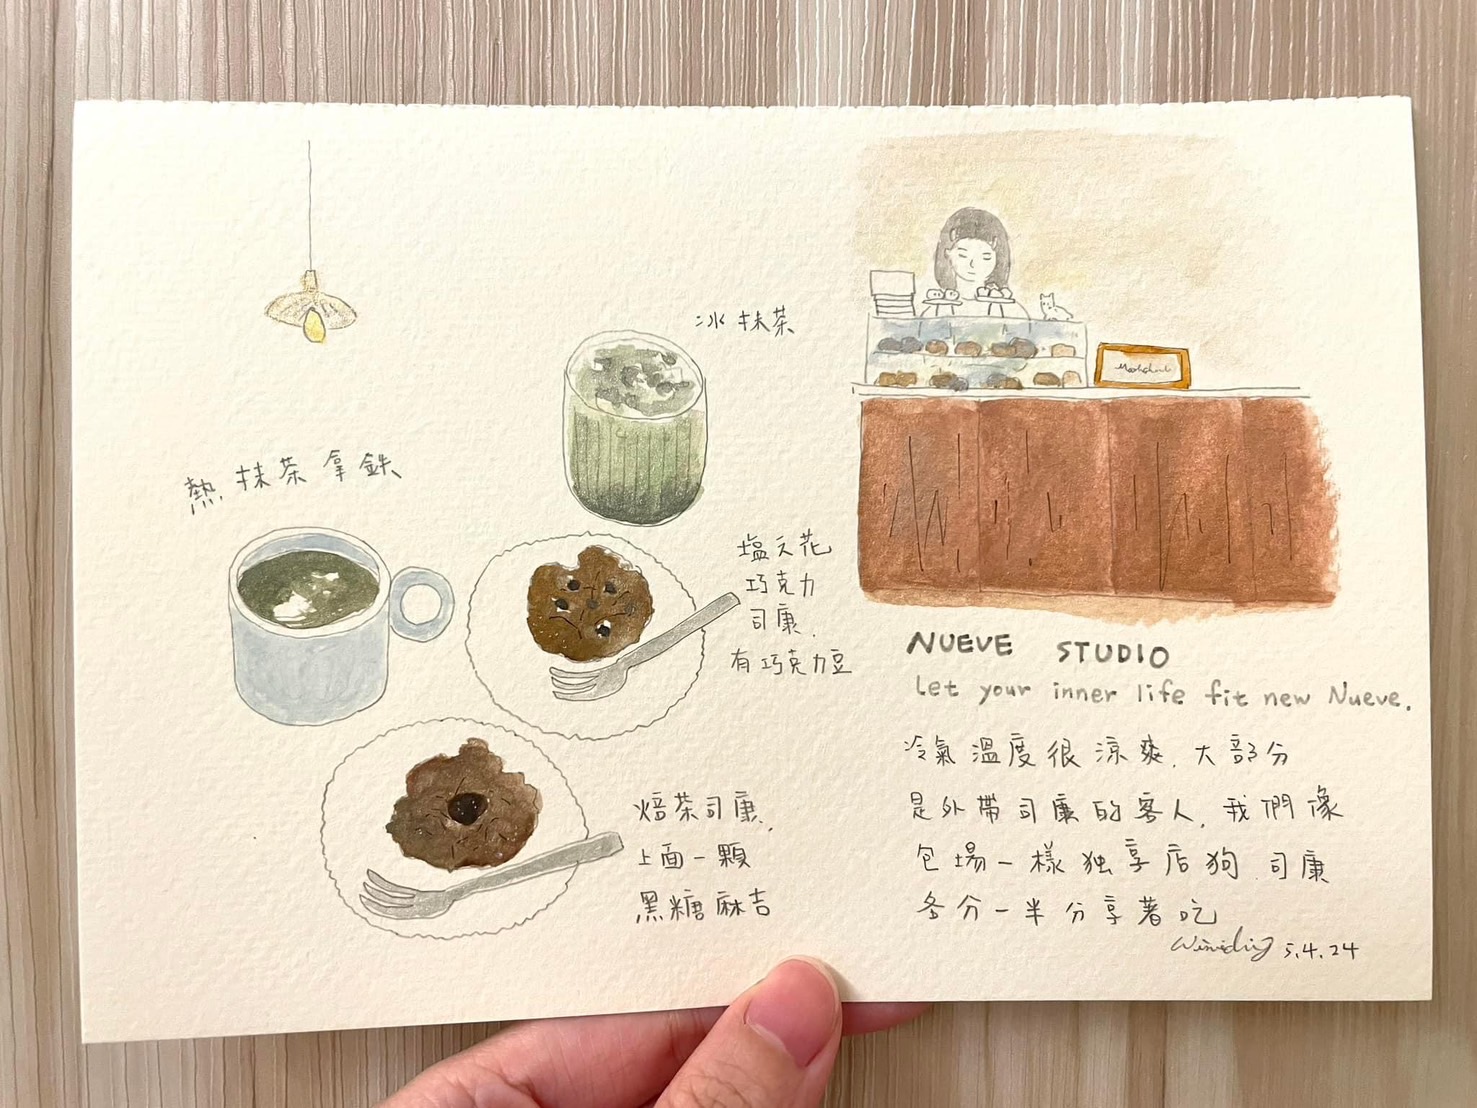 冰抹茶
熱抹茶拿鉄
塩之花
巧克力
司康.
有巧克力豆
焙茶司康,
上面一顆
黑糖麻吉
NUEVE STUDIO
Let your inner life fit new Nueve.
冷氣溫度很涼爽.大部分
是外帶司康的客人,我們像
包場一樣独享店狗 司康
各分一半分享著吃
5.4.24